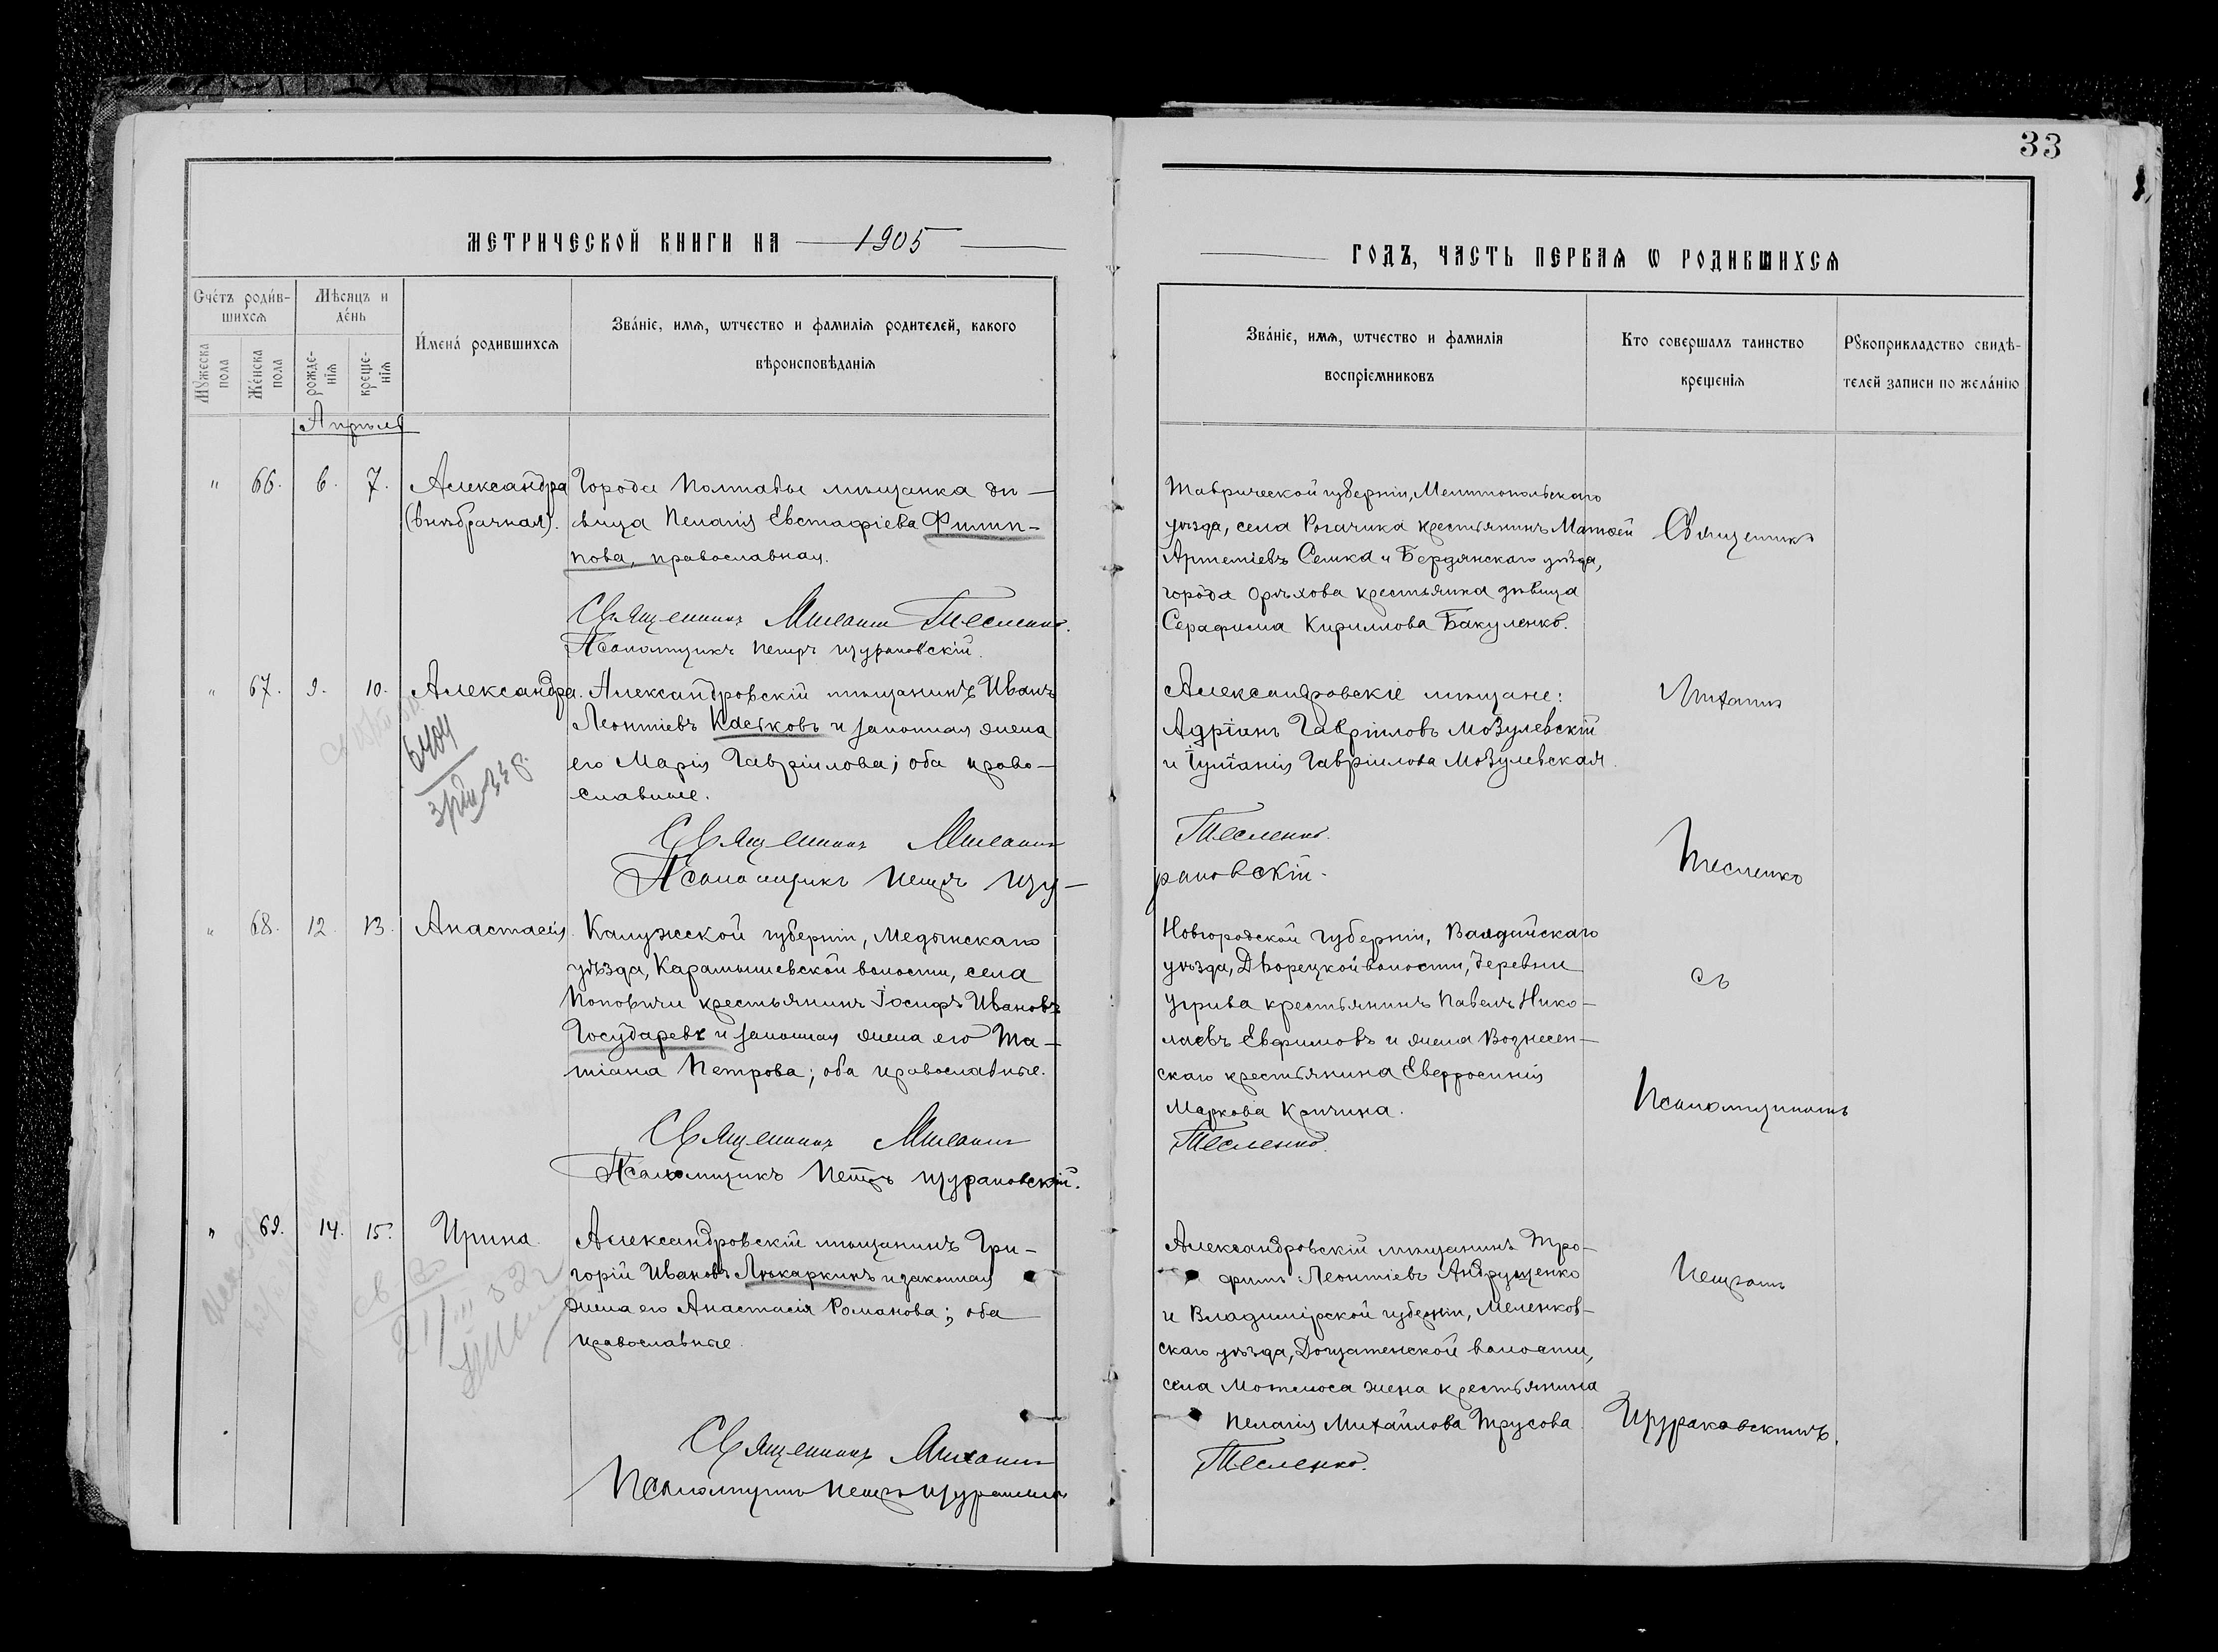 33
МЕТРИЧЕСКОЙ КНИГИ НА 1905
ГОДЪ, ЧАСТЬ ПЕРВАЯ Ѡ РОДИВШИХСЯ
Счétъ роди́в-
шихся
Мѣсяцъ и
де́нь
И́мена́ родившихся
Зва́нїе, имя, ѡтчество и фамилїя родителей, какого
вѣроисповѣданїя
Мꙋжеска
пола
Же́нска
пола
рожде-
нїя
креще-
нїя
Зва́нїе, имя, ѡтчество и фамилїя
воспрїемниковъ
Кто совершалъ таинство
крещенїя
Рꙋкоприкладство свидѣ-
телей записи по жела́нїю
Апрѣль
" 66. 6. 7. Александра
(внѣбрачная).
Города Полтавы мѣщанка дѣ-
вица Пелагія Евстафіева Филип-
пова, православная.
Священникъ Михаилъ Тесленко.
Псаломщикъ Петръ Щураковскій.
Таврической губерніи, Мелитопольскаго
уѣзда, села Рогачика крестьянинъ Матѳей
Артеміевъ Семка и Бердянскаго уѣзда,
города Орѣхова крестьянка дѣвица
Серафима Кириллова Бакуленко.
Священникъ
" 67. 9. 10. Александра.
Александровскій мѣщанинъ Иванъ
Леонтіевъ Костковъ и законная жена
его Марія Гавріилова; оба право-
славные.
Священникъ Михаилъ
Псаломщикъ Петръ Щу-
6404
Александровскіе мѣщане:
Адріанъ Гавріиловъ Мозулевскій
и Іуліанія Гавріилова Мозулевская.
Тесленко.
раковскій.
Михаилъ
Тесленко
" 68. 12. 13. Анастасія.
Калужской губерніи, Медынскаго
уѣзда, Карамышевской волости, села
Поповичи крестьянинъ Іосифъ Ивановъ
Государевъ и законная жена его Та-
тіана Петрова; оба православные.
Священникъ Михаилъ
Псаломщикъ Петръ Щураковскій.
Новгородской губерніи, Валдайскаго
уѣзда, Дворецкой волости, деревни
Угрива крестьянинъ Павелъ Нико-
лаевъ Евфимовъ и жена Вознесен-
скаго крестьянина Евфросинія
Маркова Кричина.
Тесленко.
съ
Псаломщикомъ
" 69. 14. 15. Ирина.
Александровскій мѣщанинъ Гри-
горій Ивановъ Лѣкаркинъ и законная
жена его Анастасія Романова; оба
православные.
Священникъ Михаилъ
Псаломщикъ Петръ Щураковскій
Александровскій мѣщанинъ Тро-
фимъ Леонтіевъ Андрущенко
и Владимірской губерніи, Меленков-
скаго уѣзда, Дощатенской волости,
села Мотмоса жена крестьянина
Пелагія Михайлова Трусова.
Тесленко.
Петромъ
Щураковскимъ.